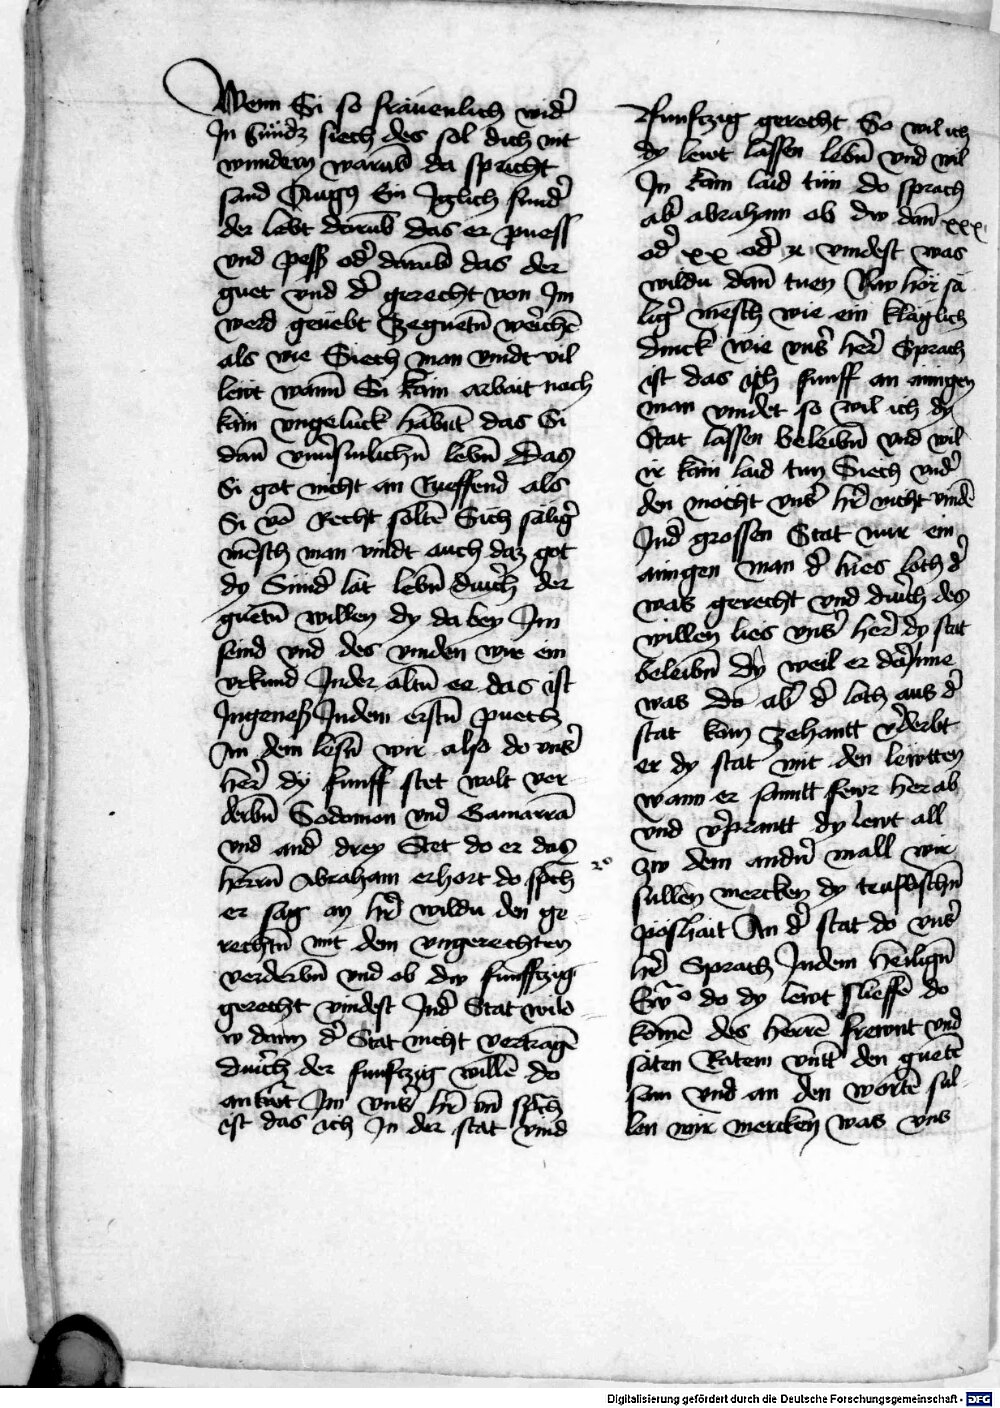 Wenn Si so fräuenlich wid̕
In sündz siech des sol dich nit
wundern warūb da spricht
sand Augꝰ Ein Iglich sund̕
der lebt darūb das er puess
vnd pess̄ od̕ darūb das der
guet vnd d̕ gerecht von Im
werd geuebt Zeguetn̄
als wie Siech man vindt vil
lewt wann Si kain arbait noch
kain vngeluck habnt das Si
dan̄ lebn̄ Das
Si got nicht an Rueffend als
Si vō Recht soltē Sich sälig̕
mēsch man vindt auch daz got
dy Sünd̕ lat lebn̄ durch der
guetn̄ willen dy da bey Im
seind vnd des vinden wir ein
vrkund Inder altn̄ ee das ist
Ingenesy Indem erstn̄ puech
In dem lesn̄ wir also do vns̕
her̕ dy funff stet wolt ver
derbn̄ Sodomon vnd Gamarra
vnd and̕ drey Stet do er das
herrn̄ Abraham erhort do sp̄ch
er sag an hr̕ wildu den ge
rechtn̄ mit dem vngerechten
verderbn̄ vnd ob dw funffczig
gerecht vindest Ind̕ Stat wild
w dann d̕ Stat nicht vertragē
durch der funfczig willē do
antw̄t Im vns̕ hr̕ vn̄ sp̄ch
ist das ich In der stat vind
funfczig gerecht So wil ich
dy lewt lassen lebn̄ vnd wil
In kain laid tün do sprach
ab̕ abraham ob dw dan̄ xxx
od̕ xx od̕ x vindest was
wildu dan̄ tuen Nw hör sä
lig̕ mēsch wie ein kläglich
dinck wie vns̕ her̕ Sprach
ist das ich funff an ainigen
man vindet so wil ich dy
Stat lassen beleibn̄ vnd wil
ir kain laid tun Siech vnd̕
den mocht vns̕ hr̕ nicht vindē
Ind̕ grossen Stat nur ein
ainigen man d̕ hies loth d̕
was gerecht vnd durch des
willen lies vns̕ her̕ dy stat
beleibn̄ dy weil er dar̕Inne
was do ab̕ d̕ loth aus d̕
stat kam zehantt v̕derbt
er dy stat mit den lewtten
wann er sanntt fewr her ab
vnd v̕prantt dy lewt all
zw dem andn̄ mall wir
süllen mercken dy teuflischn̄
pöshait An d̕ stat do vns̕
hr̕ Sprach Indem heilign̄
Ew̄o do dy lewt slieffē do
komē des herrē frewnt vnd
säten Ratem vntt̕ den guetē
sam vnd an den wortē sul
len wir mercken was vns